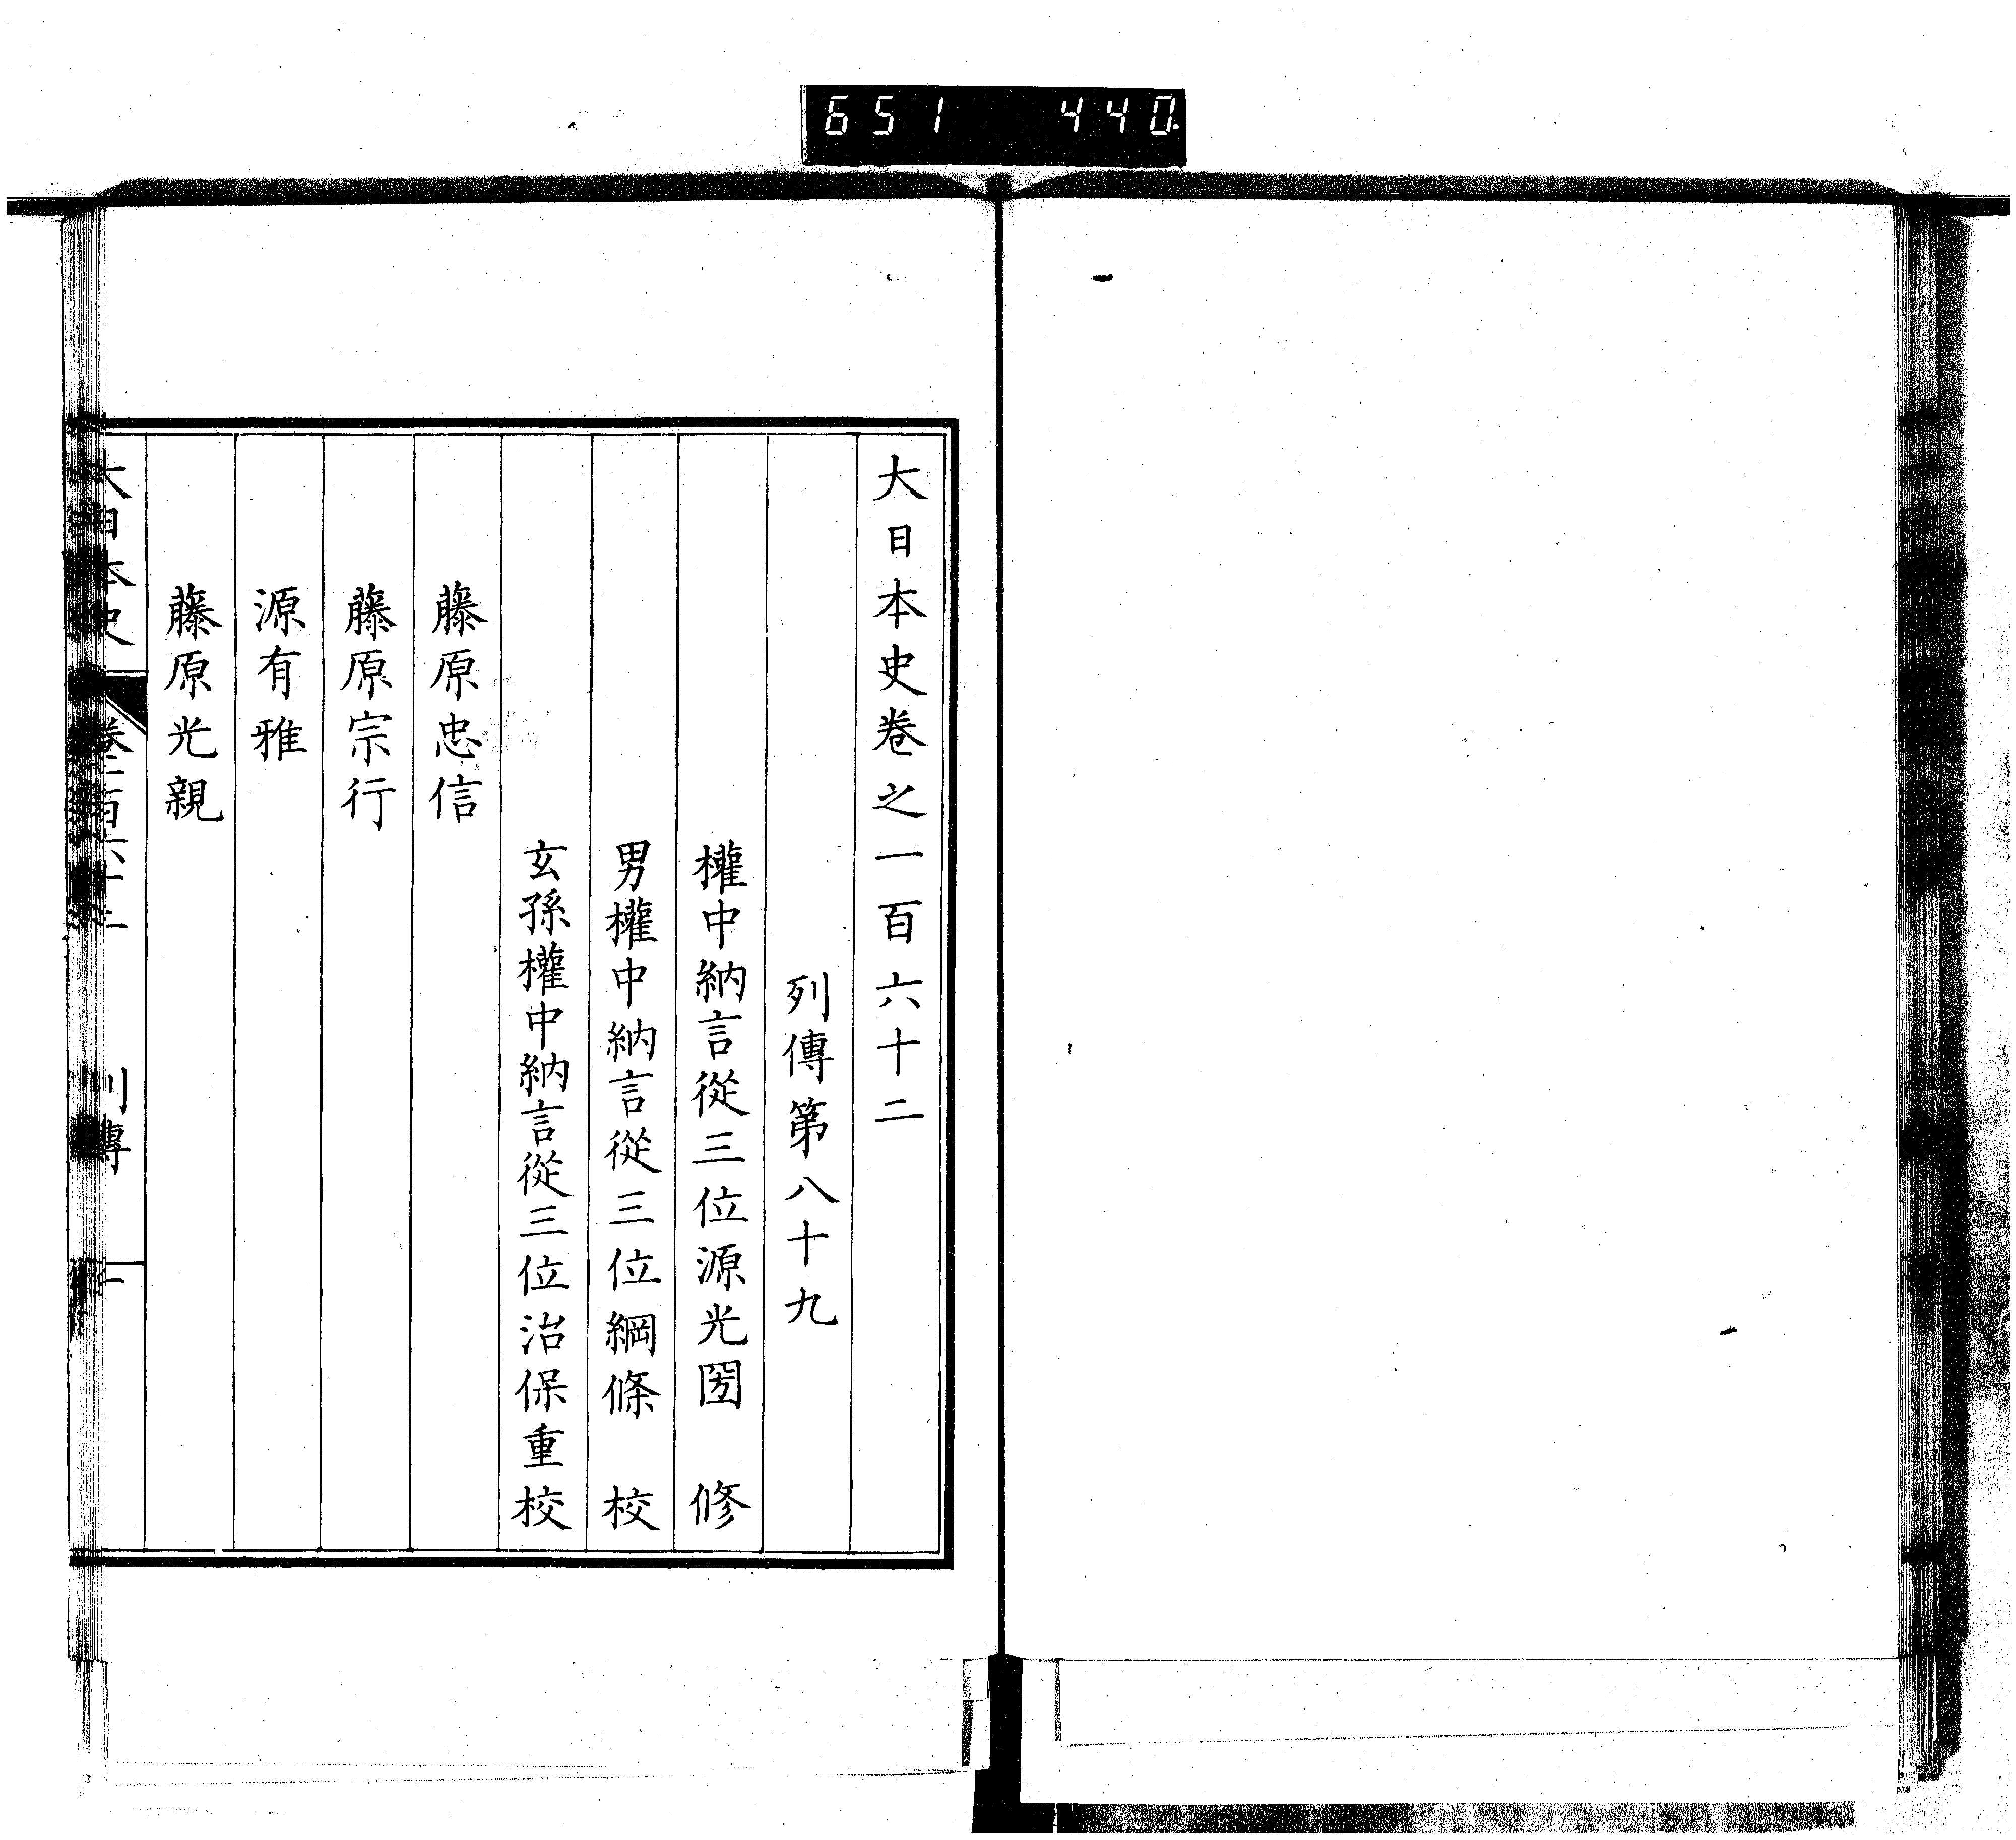 651 440.
大日本史卷之一百六十二
列傳第八十九
權中納言從三位源光圀 修
男權中納言從三位綱條 校
玄孫權中納言從三位治保重校
藤原忠信
藤原宗行
源有雅
藤原光親
大日本史 卷一百六十二 列傳 一